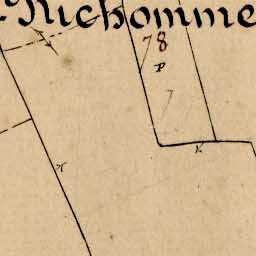 Richomme
78
P